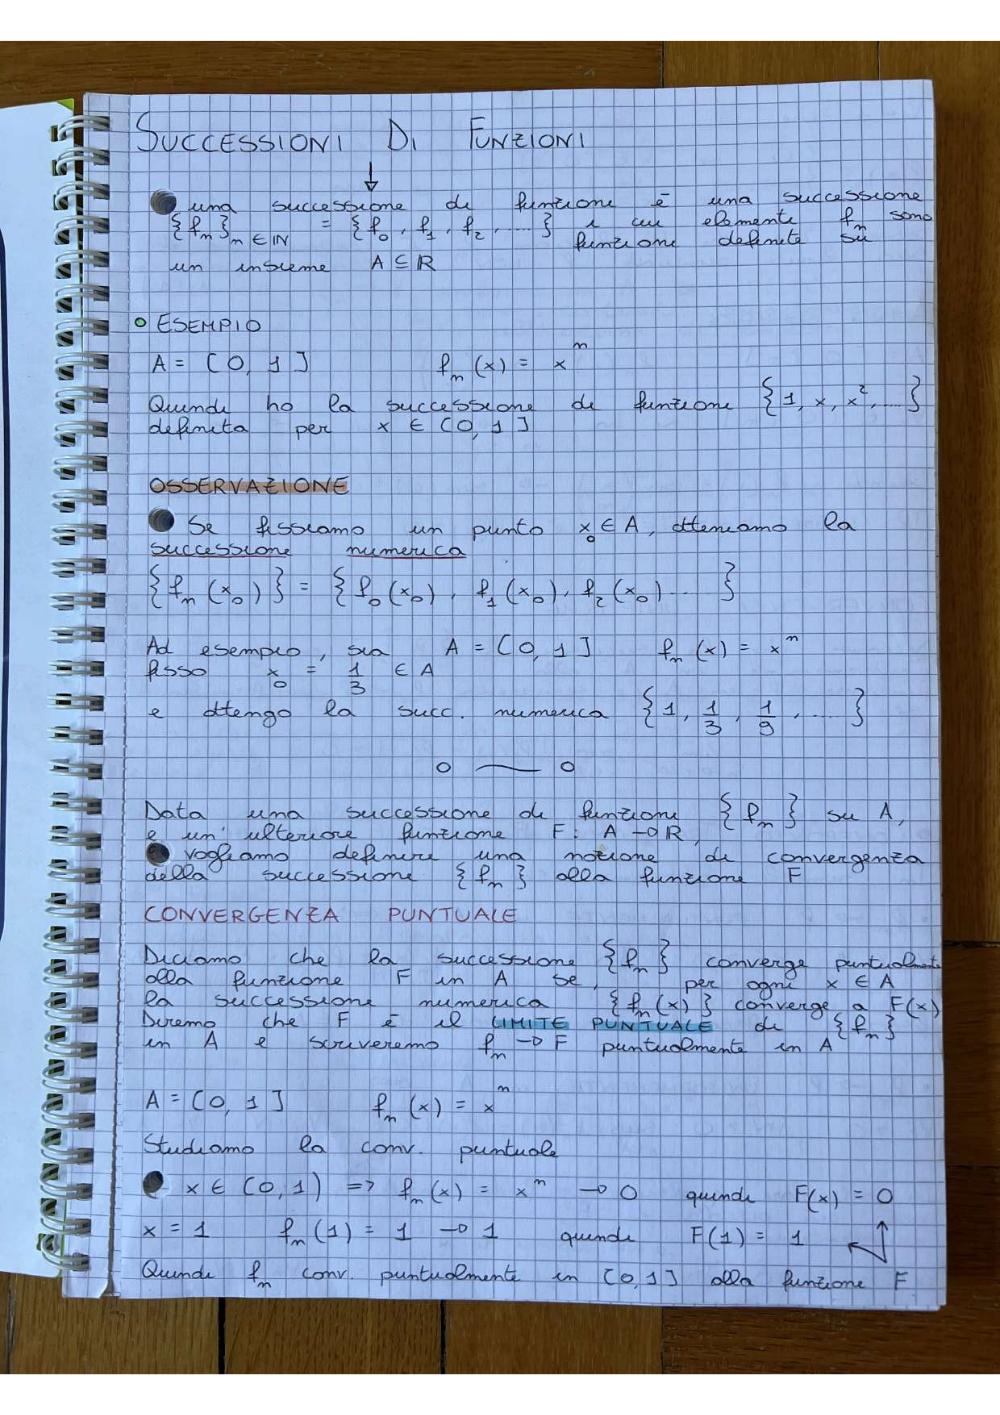 SUCCESSIONI DI FUNZIONI
↓
una successione di funzioni è una successione
{fn}n∈IN = {f0, f1, f2, ....} i cui elementi fn sono
funzioni definite su
un insieme A ⊆ R
ESEMPIO
A = [0, 1] fn(x) = x^n
Quindi ho la successione di funzioni {1, x, x², ...}
definita per x ∈ [0, 1]
OSSERVAZIONE
Se fissiamo un punto x0 ∈ A, otteniamo la
successione numerica
{fn(x0)} = {f0(x0), f1(x0), f2(x0) .... }
Ad esempio, sia A = [0, 1] fn(x) = x^n
fisso x0 = 1/3 ∈ A
e ottengo la succ. numerica {1, 1/3, 1/9, ....}
Data una successione di funzioni {fn} su A,
e un' ulteriore funzione F: A → R,
vogliamo definire una nozione di convergenza
della successione {fn} alla funzione F
CONVERGENZA PUNTUALE
Diciamo che la successione {fn} converge puntualmente
alla funzione F in A se, per ogni x ∈ A
la successione numerica {fn(x)} converge a F(x)
Diremo che F è il LIMITE PUNTUALE di {fn}
in A e scriveremo fn → F puntualmente in A
A = [0, 1] fn(x) = x^n
Studiamo la conv. puntuale
x ∈ [0, 1) => fn(x) = x^n → 0 quindi F(x) = 0
x = 1 fn(1) = 1 → 1 quindi F(1) = 1
Quindi fn conv. puntualmente in [0, 1] alla funzione F